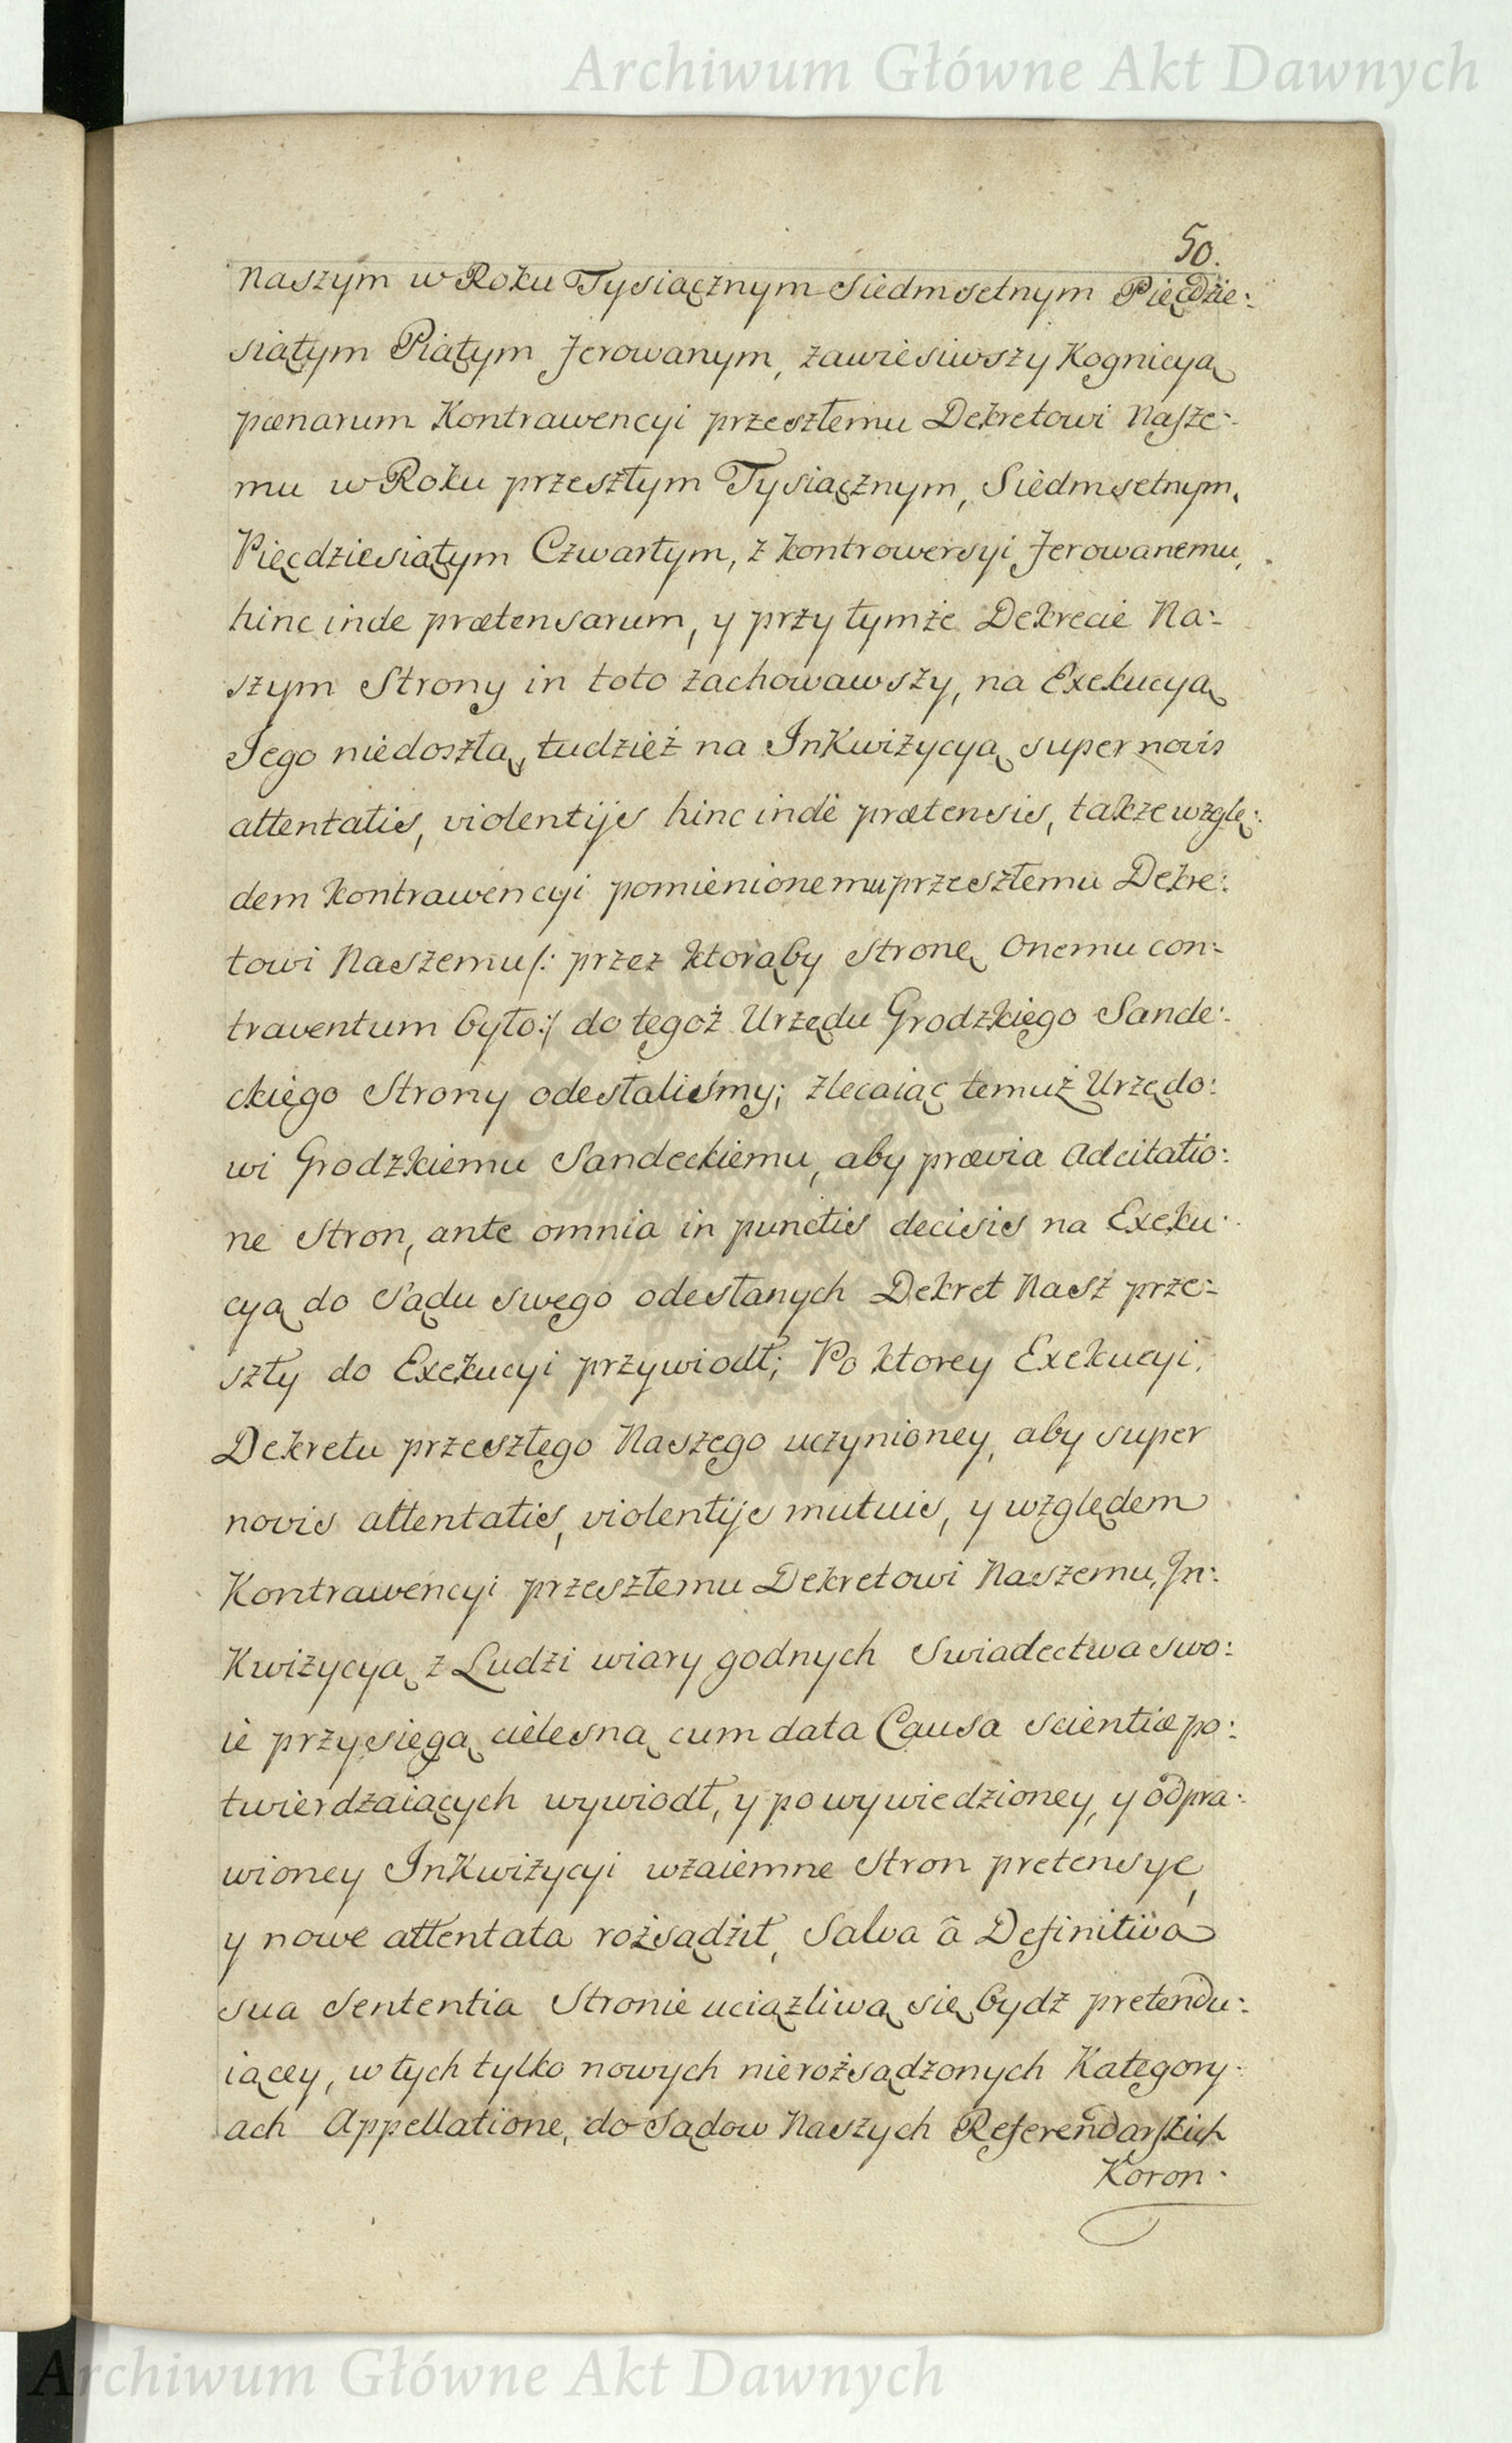 Archiwum Główne Akt Dawnych
50.
Naszym w Roku Tysiącznym Siedmsetnym Pięcdzie:
siątym Piątym ferowanym, zawiesiwszy Kognicyą
pœnarum Kontrawencyi przeszłemu Dekretowi Nasze:
mu w Roku przeszłym Tysiącznym, Siedmsetnym,
Pięcdziesiątym Czwartym, z kontrowersyi ferowanemu,
hinc inde prætensarum, y przy tymże Dekrecie Na:
szym Strony in toto zachowawszy, na Exekucyą
Jego niedoszłą, tudzież na InKwizycyą super novis
attentatis, violentijs hinc inde prætensis, także wzglę:
dem kontrawencyi pomienionemu przeszłemu Dekre:
towi Naszemu /: przez ktorąby stronę onemu con:
traventum było :/ do tegoż Urzędu Grodzkiego Sande:
ckiego Strony odesłaliśmy; zlecaiąc temuż Urzędo:
wi Grodzkiemu Sandeckiemu, aby prævia adcitatio:
ne stron, ante omnia in punctis decisis na Exeku:
cyą do Sądu swego odesłanych Dekret Nasz prze:
szły do Exekucyi przywiodł; Po ktorey Exekucyi,
Dekretu przeszłego Naszego uczynioney, aby super
novis attentatis, violentijs mutuis, y względem
Kontrawencyi przeszłemu Dekretowi Naszemu, In:
Kwizycyą z Ludzi wiary godnych swiadectwa swo:
ie przysięgą cielesną cum data Causa scientiæ po:
twierdzaiących wywiodł, y po wywiedzioney, y odpra:
wioney InKwizycyi wzaiemne stron pretensye,
y nowe attentata rozsądził, Salva â Definitiva
sua Sententia Stronie uciązliwą się bydz pretendu:
iącey, w tych tylko nowych nierozsądzonych Kategory:
ach Appellatione, do Sądow Naszych Referendarskich
Koron:
Archiwum Główne Akt Dawnych